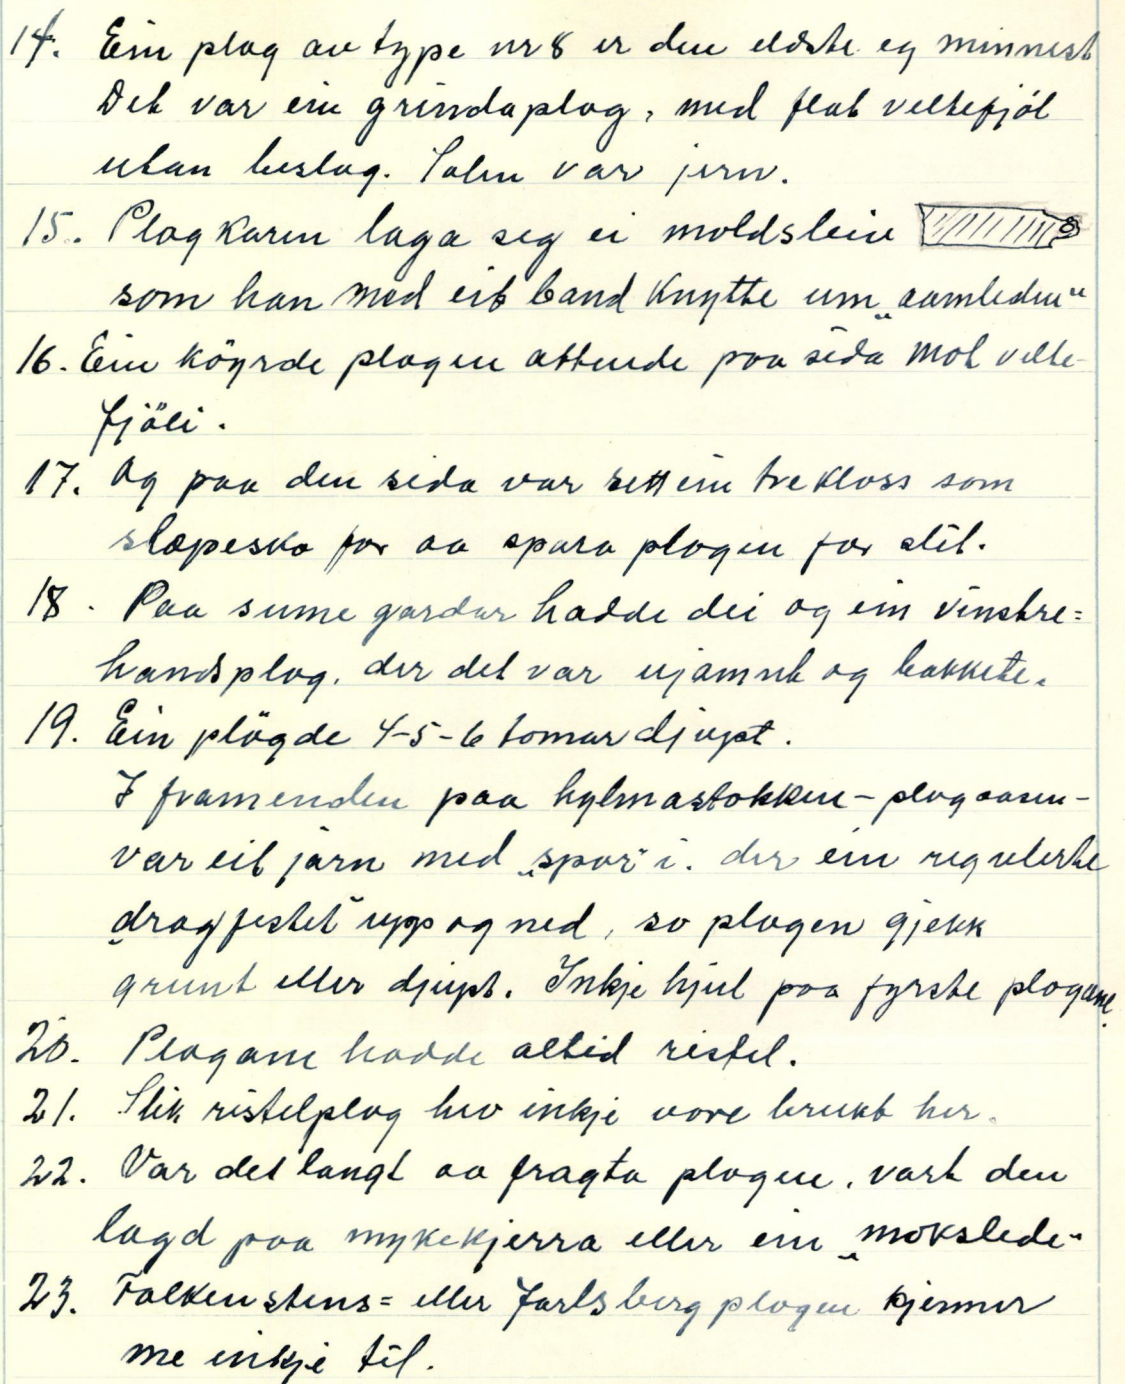 14. Ein plog av type nr 8 er den eldste eg minnest
Det var ein grindaplog, med flat veltefjöl
utan beslag. Solen var jern.
15. Plogkaren laga seg ei moldsleiv
som han med eit band knytte um „aamleden"
16. Ein köyrde plogen attende paa sida mot velte-
fjöli.
17. Og paa den sida var sett ein trekloss som
slæpesko for aa spara plogen for slit.
18. Paa sume gardar hadde dei og ein vinstre=
handsplog, der det var ujamnt og bakkete.
19. Ein plögde 4-5-6 tomar djupt.
I framenden paa hylmastokken - plogaasen -
var eit jarn med „spor" i. der ein regulerte
„dragfestet" upp og ned, so plogen gjekk
grunt eller djupt. Inkje hjul paa fyrste plogane.
20. Plogane hadde altid ristel.
21. Slik ristelplog hev inkje vore brukt her.
22. Var det langt aa fragta plogen, vart den
lagd paa mykekjerra eller ein „mokslede"
23. Falkenstens= eller Jarlsbergplogen kjenner
me inkje til.